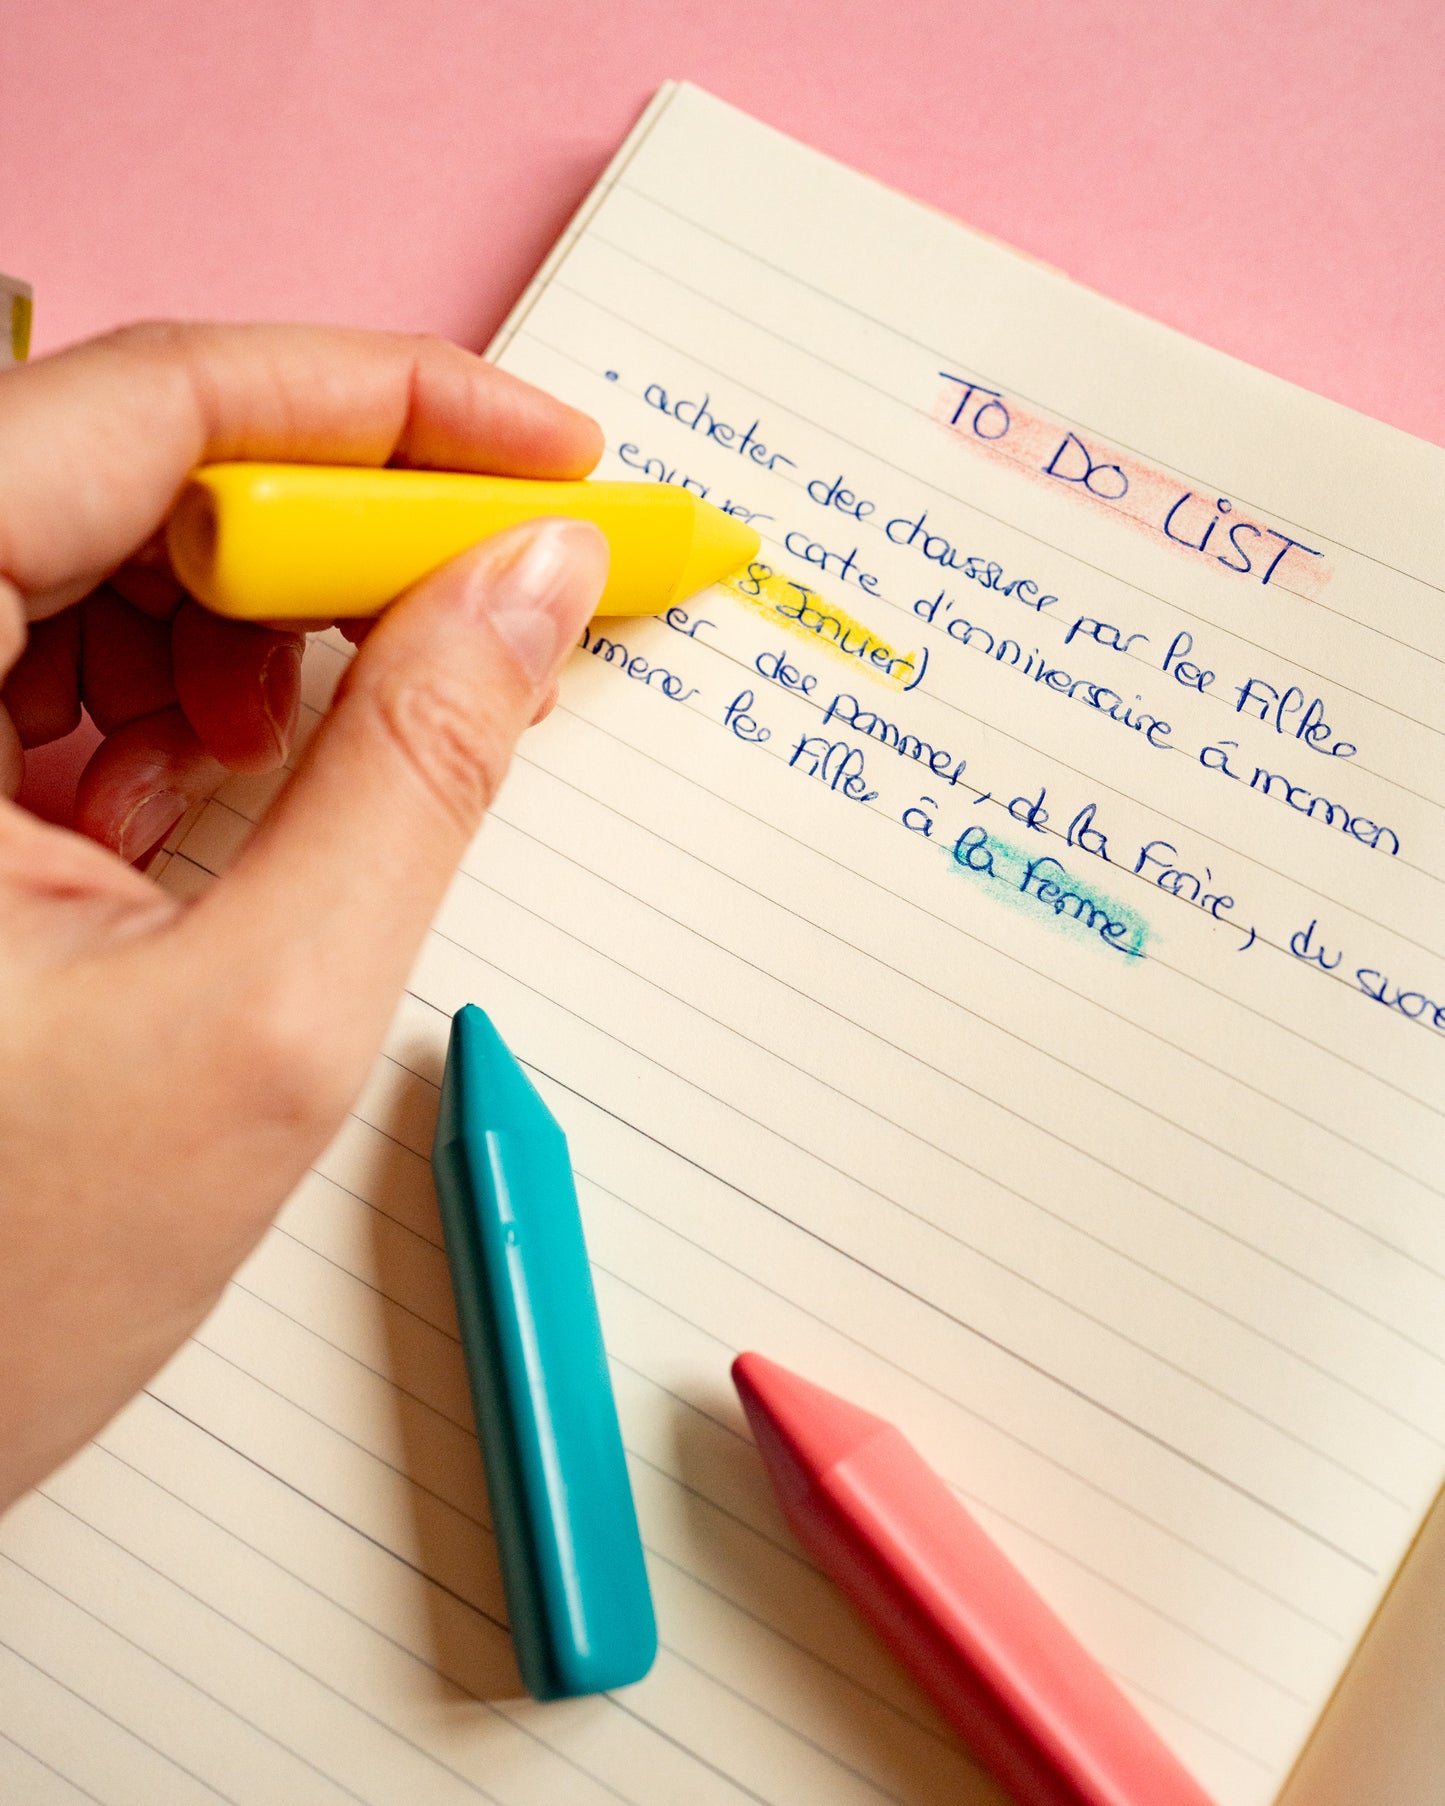 TO DO LiST
• acheter des chaussures par les filles
envoyer carte d'anniversaire à maman
8 Janvier)
des pommes, de la farine, du sucre
les filles à la ferme